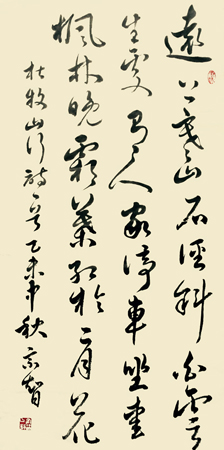 遠上寒山石徑斜白雲
生處有人家停車坐愛
楓林晚霜葉紅於二月花
杜牧山行詩一首乙未中秋智